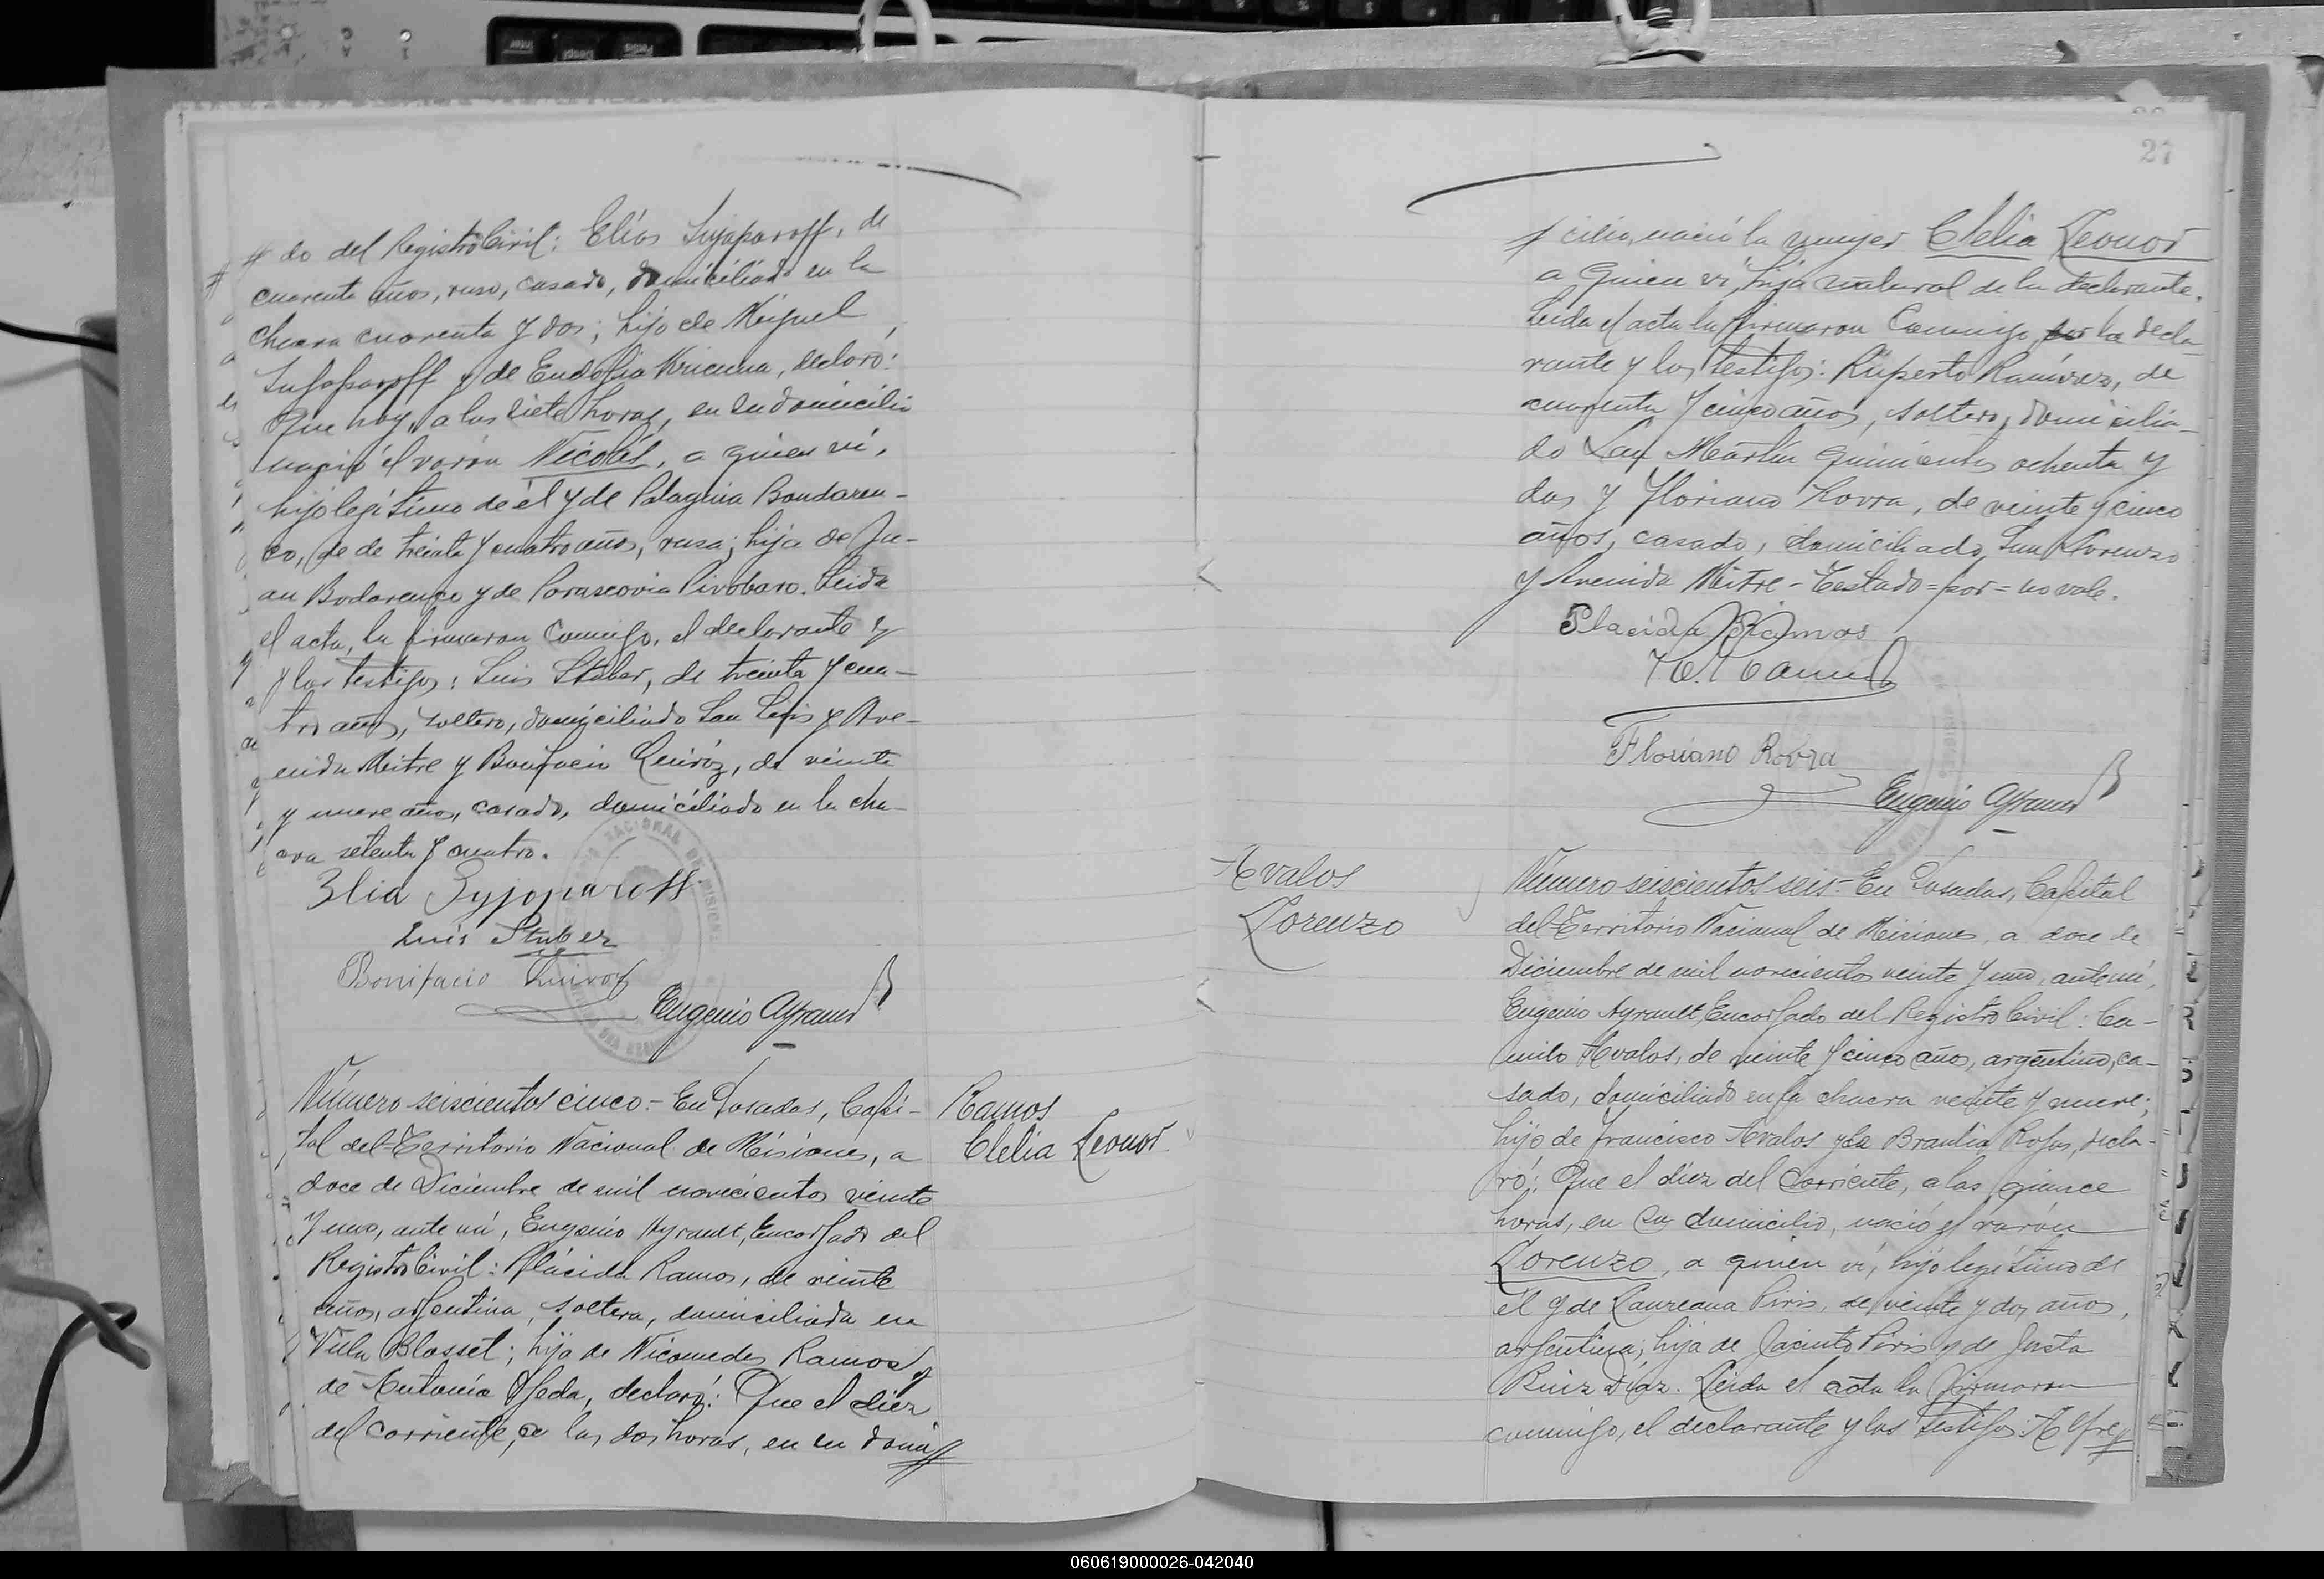 do del Registro Civil: Elías Sujaparoff, de
cuarenta años, ruso, casado, domiciliado en la
chacra cuarenta y dos; hijo de Miguel
Sujaparoff y de Eudofia, declaró:
Que hoy, a las siete horas, en su domicilio
nació el varón Nicolás, a quien ví,
hijo legítimo de él y de Palaguia Bondaren-
co, de de treinta y cuatro años, rusa; hija de Ju-
an Bodarenco y de Parascovia Pivobaro. Leida
el acta, la firmaron conmigo, el declarante y
y los testigos: Luis Stuber, de treinta y cua-
tro años, soltero, domiciliado San Luis y Ave-
nida Mitre y Bonifacio Quiróz, de veinte
y nueve años, casado, domiciliado en la cha-
cra setenta y cuatro.
Luis Stuber
Bonifacio Quiroz
Eugenio Ayrault
Número seiscientos cinco.- En Posadas, Capi-
tal del Territorio Nacional de Misiones, a
doce de Diciembre de mil novecientos veinte
y uno, ante mí, Eugenio Ayrault, Encargado del
Registro Civil: Plácida Ramos, de veinte
años, argentina, soltera, domiciliada en
Villa Blosset; hija de Nicomedes Ramos y
de Antonia Ojeda, declaró: Que el diez
del corriente, a las dos horas, en su domi
Ramos
Clelia Leonor
27
cilio, nació la mujer Clelia Leonor
a quien ví, hija natural de la declarante.
Leida el acta la firmaron conmigo, por la decla-
rante y los testigos: Ruperto Ramírez, de
cuarenta y cinco años, soltero, domicilia-
do San Martín quinientos ochenta y
dos y Floriano Rovra, de veinte y cinco
años, casado, domiciliado San Lorenzo
y Avenida Mitre - Testado = por = no vale.
Placida Ramos
Floriano Rovra
Eugenio Ayrault
Avalos
Lorenzo
Número seiscientos seis.- En Posadas, Capital
del Territorio Nacional de Misiones, a doce de
Diciembre de mil novecientos veinte y uno, ante mí,
Eugenio Ayrault, Encargado del Registro Civil: Ca-
milo Avalos, de veinte y cinco años, argentino, ca-
sado, domiciliado en la chacra veinte y nueve;
hijo de Francisco Avalos y de Braulia Rojas, decla-
ró: Que el diez del corriente, a las quince
horas, en su domicilio, nació el varón
Lorenzo, a quien ví, hijo legítimo de
él y de Laureana Piris, de veinte y dos años,
argentina; hija de Jacinto Piris y de Justa
Ruiz Díaz. Leida el acta la firmaron
conmigo, el declarante y los testigos: Alfre
060619000026-042040